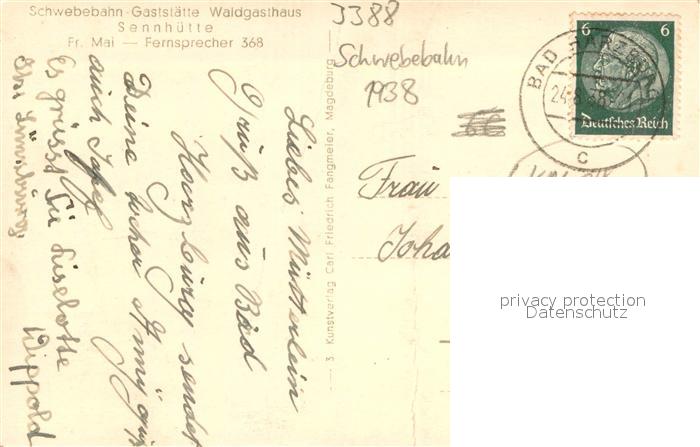 Schwebebahn-Gaststätte Waldgasthaus
Sennhütte
Fr. Mai — Fernsprecher 368
Liebes Mütterlein
Gruß aus Bad
Harzburg sendet
Deine
auch
Es grüsst Sie Liselotte
Wippold
3 Kunstverlag Carl Friedrich Fangmeier, Magdeburg
3388
Schwebebahn
1938
6 6
Deutsches Reich
BAD HARZBURG
c
Frau
Joha
privacy protection
Datenschutz